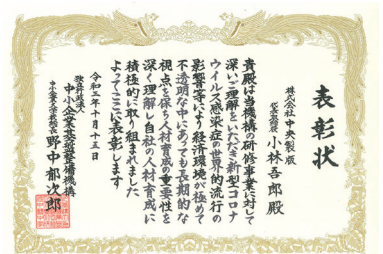 表彰状
株式会社中央製版
代表取締役 小林吾郎殿
貴殿は当機構の研修事業に対して
深いご理解をいただき新型コロナ
ウイルス感染症の世界的流行の
影響等により経済環境が極めて
不透明な中にあっても長期的な
視点を保ち人材育成の重要性を
深く理解し自社の人材育成に
積極的に取り組まれました
よってここに表彰します
令和三年十月十五日
独立行政法人
中小企業基盤整備機構
中小企業大学校 野中郁次郎